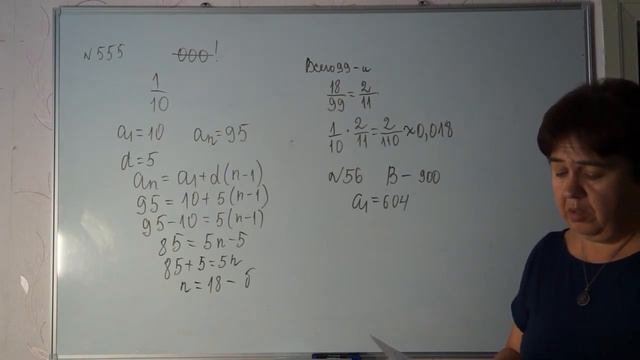 №555 000!
1/10
a₁=10 aₙ=95
d=5
aₙ=a₁+d(n-1)
95=10+5(n-1)
95-10=5(n-1)
85=5n-5
85+5=5n
n=18-б
Всего 99-и
18/99=2/11
1/10·2/11=2/110×0,018
№56 В-900
a₁=604